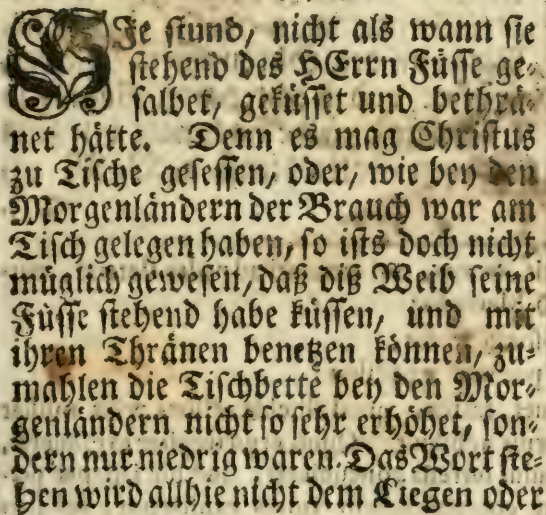 SIe stund, nicht als wann sie
stehend des HErrn Füsse ge-
salbet, geküsset und bethrä-
net hätte. Denn es mag Christus
zu Tische gesessen, oder, wie bey den
Morgenländern der Brauch war am
Tisch gelegen haben, so ists doch nicht
müglich gewesen, daß diß Weib seine
Füsse stehend habe küssen, und mit
ihren Thränen benetzen können, zu-
mahlen die Tischbette bey den Mor-
genländern nicht so sehr erhöhet, son-
dern nur niedrig waren. Das Wort ste-
hen wird allhie nicht dem Liegen oder